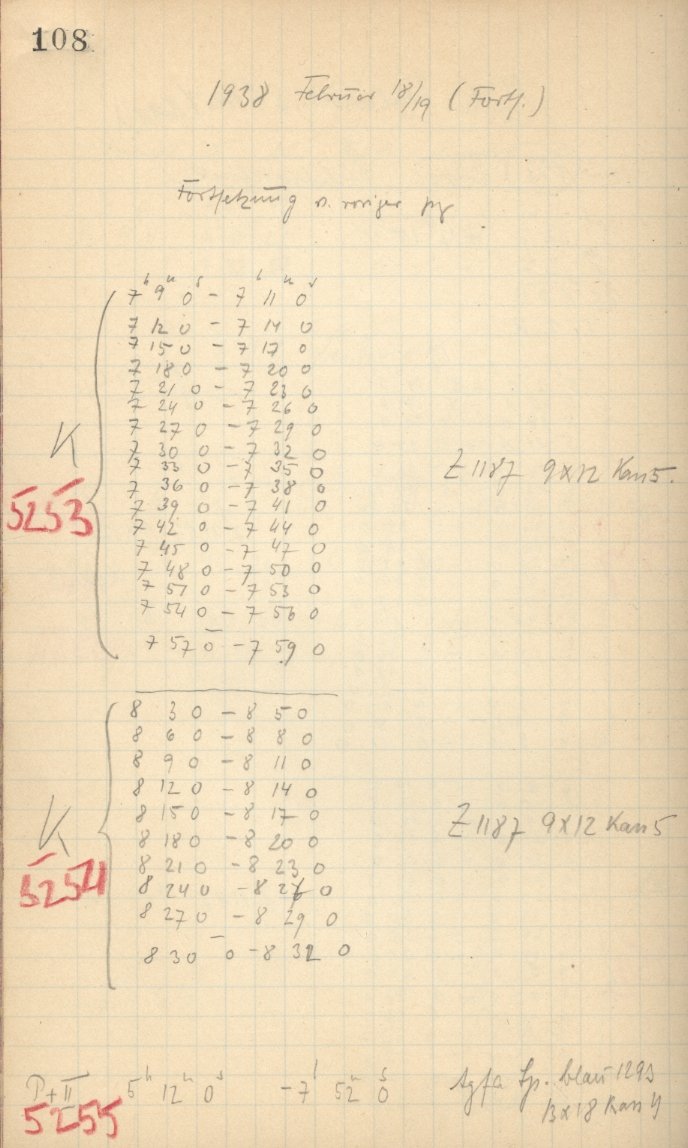 108
1938 Februar 18/19 (Forts.)
Fortsetzung v. voriger pg
7h 9m 0s - 7h 11m 0s
7 12 0 - 7 14 0
7 15 0 - 7 17 0
7 18 0 - 7 20 0
7 21 0 - 7 23 0
7 24 0 - 7 26 0
7 27 0 - 7 29 0
K 7 30 0 - 7 32 0
7 33 0 - 7 35 0 Z 1187 9x12 Kass 5.
7 36 0 - 7 38 0
5253 7 39 0 - 7 41 0
7 42 0 - 7 44 0
7 45 0 - 7 47 0
7 48 0 - 7 50 0
7 51 0 - 7 53 0
7 54 0 - 7 56 0
7 57 0 - 7 59 0
8 3 0 - 8 5 0
8 6 0 - 8 8 0
8 9 0 - 8 11 0
8 12 0 - 8 14 0
K 8 15 0 - 8 17 0 Z 1187 9x12 Kass 5
8 18 0 - 8 20 0
5254 8 21 0 - 8 23 0
8 24 0 - 8 26 0
8 27 0 - 8 29 0
8 30 0 - 8 32 0
P+II 5h 12m 0s - 7h 52m 0s Agfa Sp. blau 1293
5255 13x18 Kass